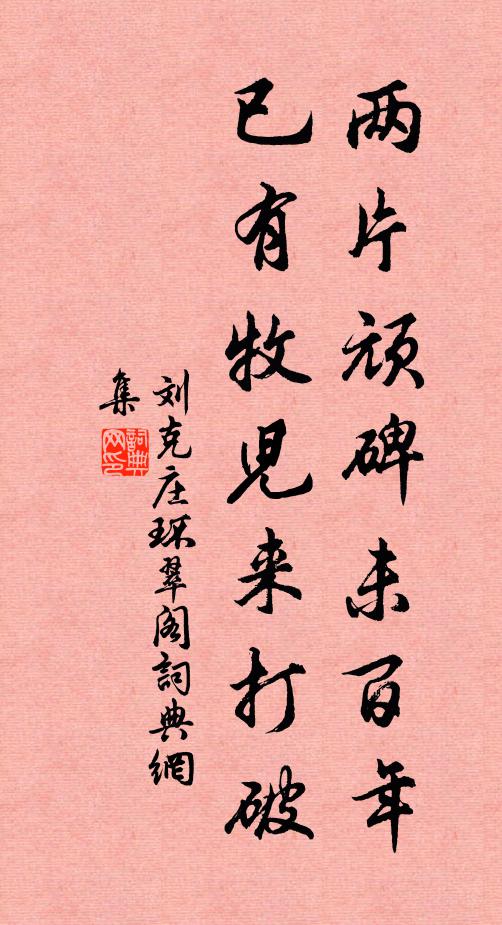 两片顽碑未百年
已有牧児来打破
刘克庄环翠阁詞典網
集
詞典网印